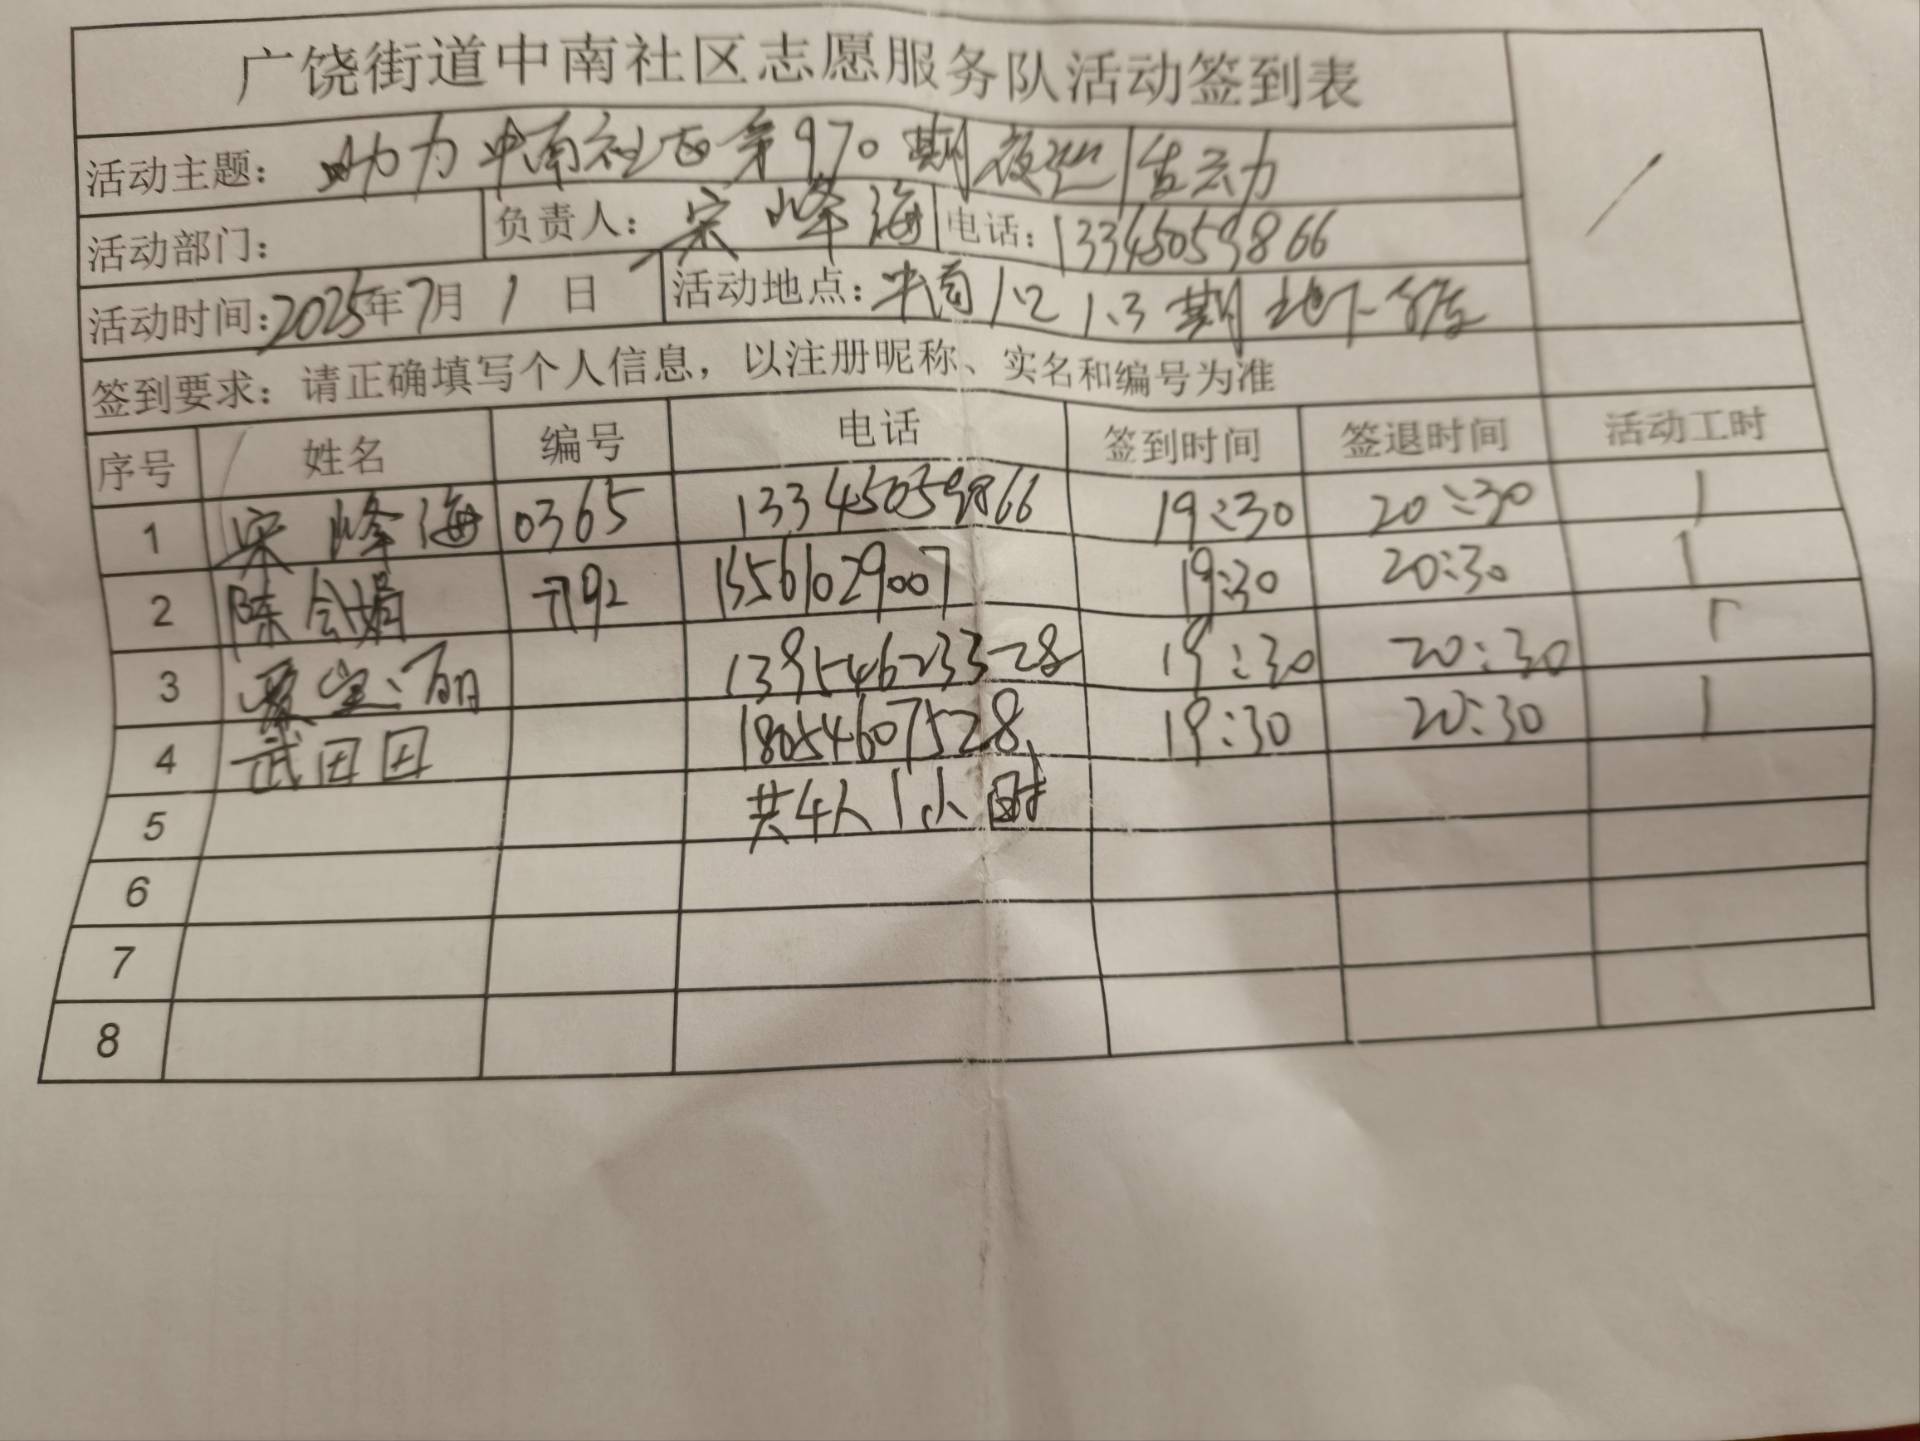 广饶街道中南社区志愿服务队活动签到表
活动主题: 助力中南社区第970期夜巡活动
活动部门: 负责人: 宋峰海 电话: 13345059866
活动时间: 2025年7月1日 活动地点: 中南1.2 1.3期地下车库
签到要求: 请正确填写个人信息，以注册昵称、实名和编号为准
序号 姓名 编号 电话 签到时间 签退时间 活动工时
1 宋峰海 0365 13345059866 19:30 20:30 1
2 陈会娟 13561029007 19:30 20:30 1
3 13954623328 19:30 20:30 1
4 武田田 18054607528 19:30 20:30 1
5 共4人1小时
6
7
8